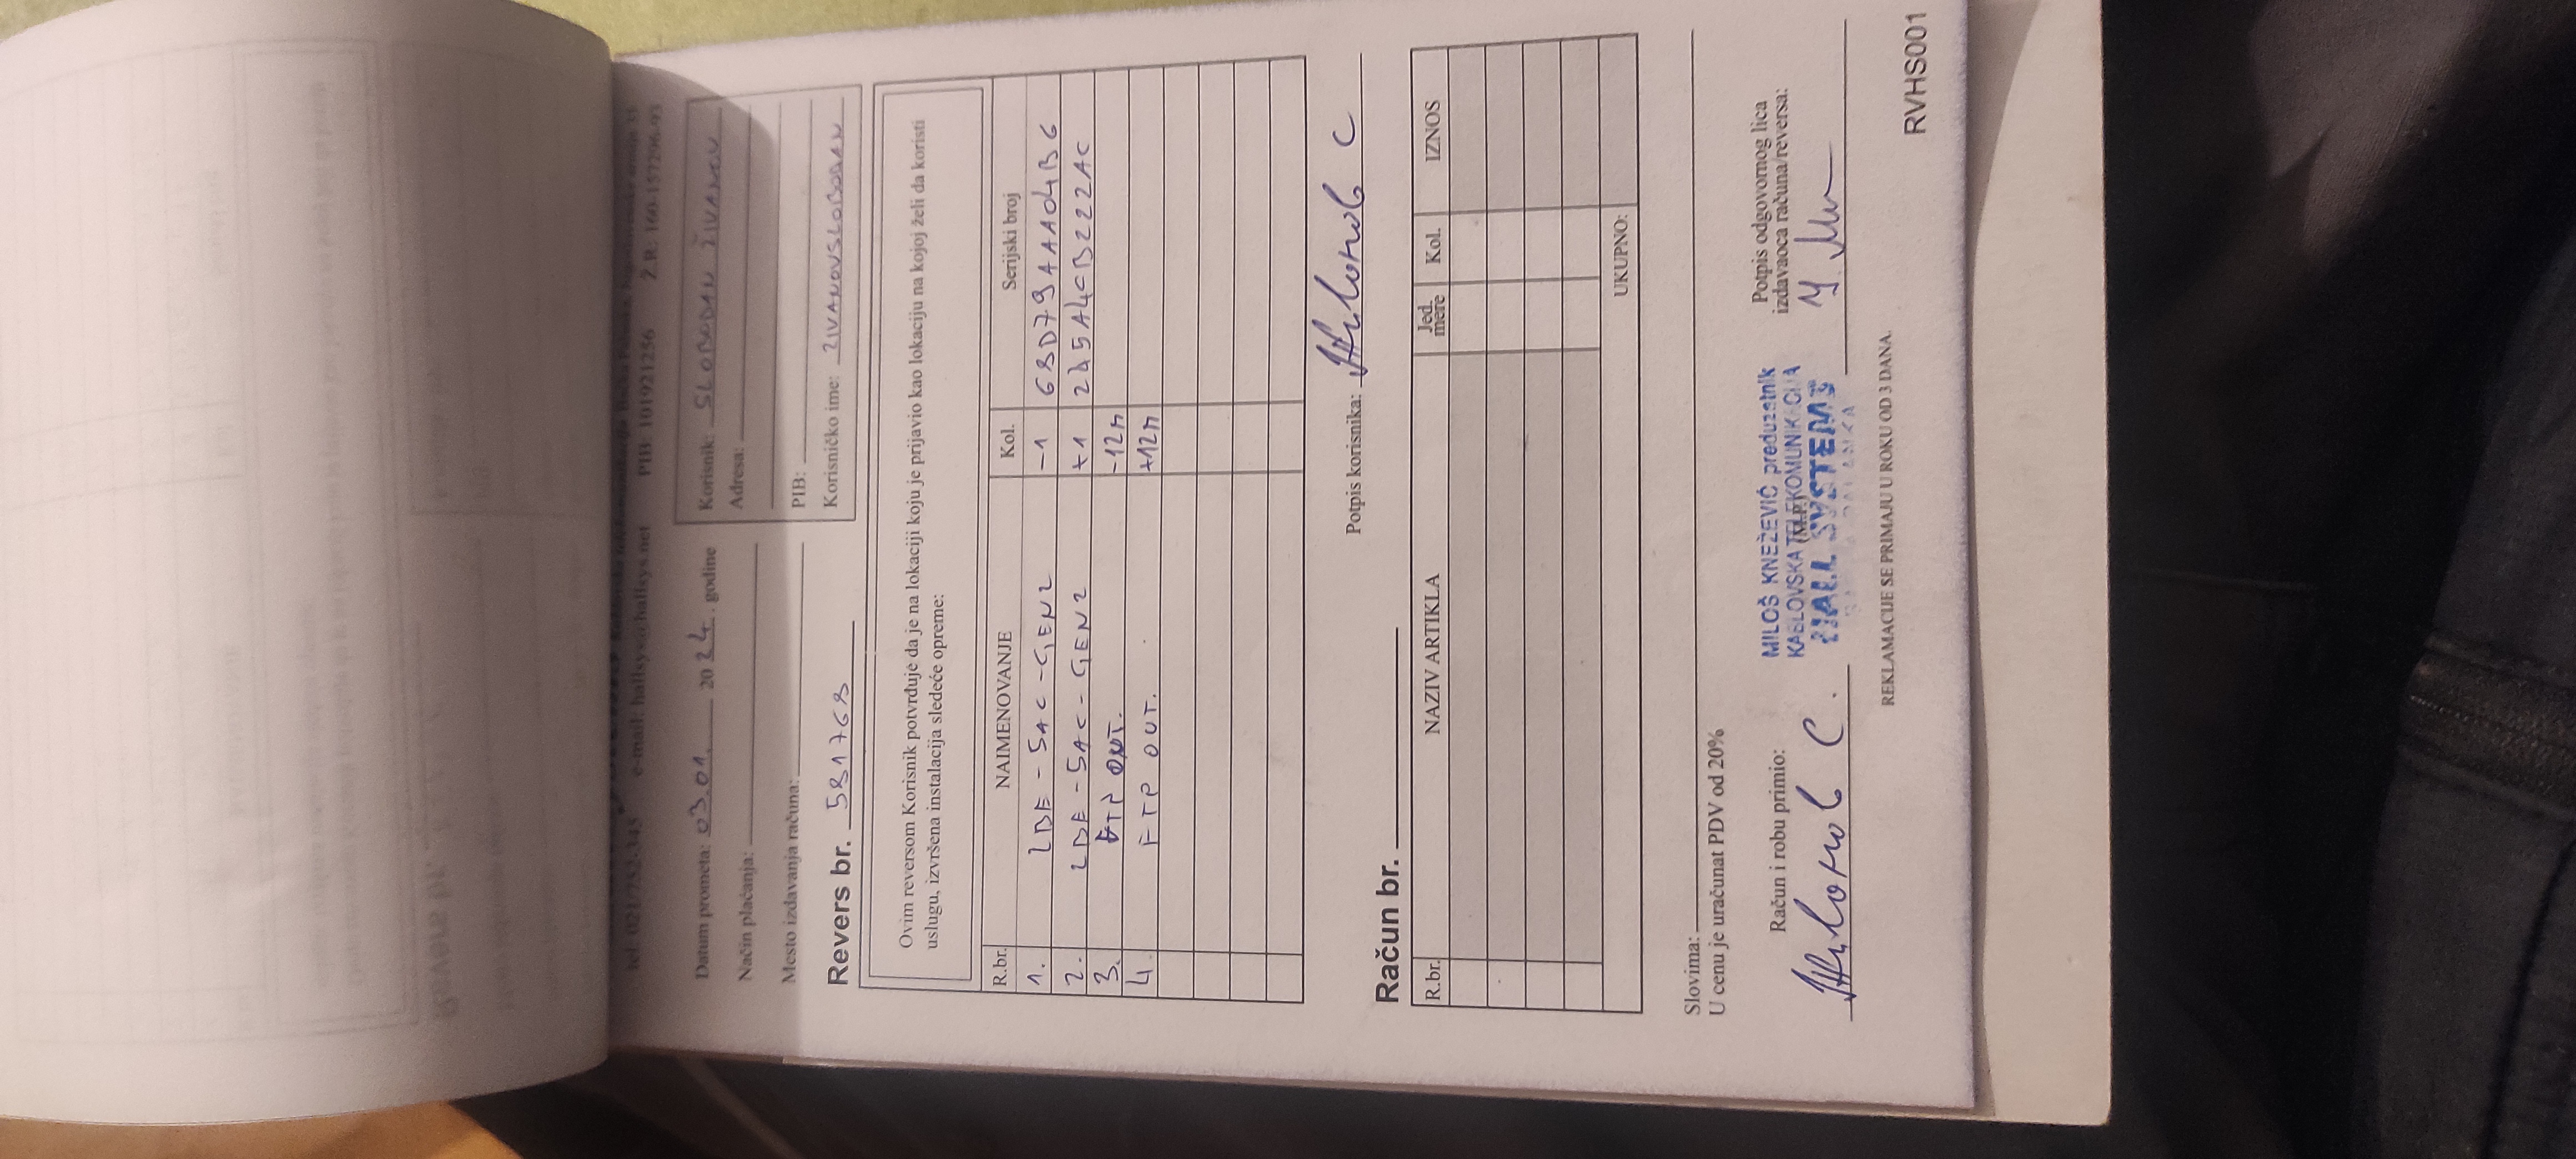 tel. 021/752-345 e-mail: hallsys@hallsys.net PIB: 101921256 Ž.R.: 160-157296-93
Datum prometa: 03.01. 2024. godine
Način plaćanja:
Mesto izdavanja računa:
Korisnik: SLOBODAN ŽIVANOV
Adresa:
PIB:
Korisničko ime: ZIVANOVSLOBODAN
Revers br. 581768
Ovim reversom Korisnik potvrđuje da je na lokaciji koju je prijavio kao lokaciju na kojoj želi da koristi
uslugu, izvršena instalacija sledeće opreme:
R.br. NAIMENOVANJE Kol. Serijski broj
1. LBE-5AC-GEN2 -1 68D79AAA04B6
2. LBE-5AC-GEN2 +1 245A4CB222AC
3. FTP OUT. -12m
4. FTP OUT. +12m
Potpis korisnika: Живонов С
Račun br.
R.br. NAZIV ARTIKLA Jed. mere Kol. IZNOS
UKUPNO:
Slovima:
U cenu je uračunat PDV od 20%
Račun i robu primio:
Живонов С.
MILOŠ KNEŽEVIĆ preduzetnik
KABLOVSKA TELEKOMUNIKACIJA
HALL SYSTEMS
(M.P.)
Potpis odgovornog lica
izdavaoca računa/reversa:
REKLAMACIJE SE PRIMAJU U ROKU OD 3 DANA.
RVHS001